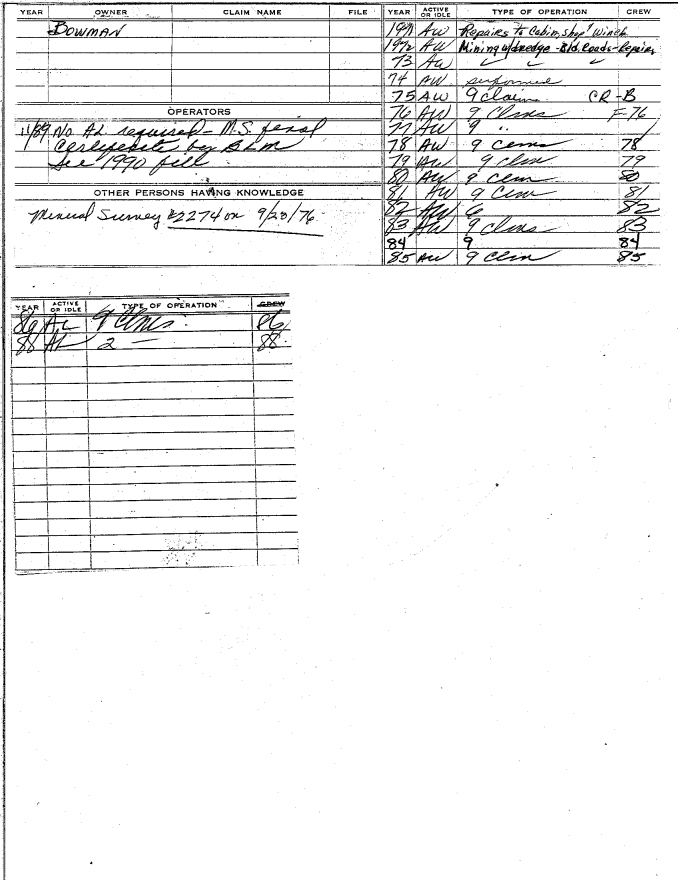 YEAR OWNER CLAIM NAME FILE
BOWMAN
OPERATORS
11/89 No A.L. required - M.S. final
Certificate by BLM
See 1990 fill
OTHER PERSONS HAVING KNOWLEDGE
Mineral Survey #2274 on 9/23/76.
YEAR ACTIVE OR IDLE TYPE OF OPERATION CREW
1971 AW Repairs to Cabin, shop, Winch
1972 AW Mining w/dredge - Bld. Roads - Repairs
73 AW ✓ ✓ ✓
74 AW performed
75 AW 9 claim CR-B
76 AW 9 Clms F-76
77 AW 9 "
78 AW 9 Clms 78
79 AW 9 Clm 79
80 AW 9 Clm 80
81 AW 9 Clm 81
82 AW 6 82
83 AW 9 Clms 83
84 9 84
85 AW 9 Clm 85
YEAR ACTIVE OR IDLE TYPE OF OPERATION CREW
86 AL 9 Clms. 86
88 AL 2 — 88